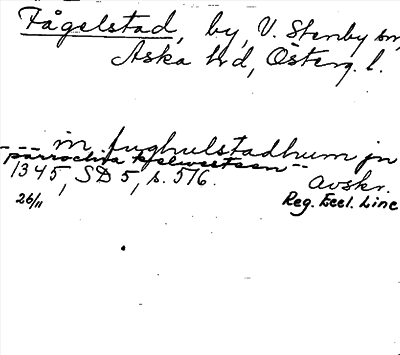 Fågelstad, by, V. Stenby sn,
Aska hd, Österg. l.
--- in fughulstadhum jn
parrochia
1345, SD 5, s. 516. Avskr.
26/11 Reg. Eccl. Linc